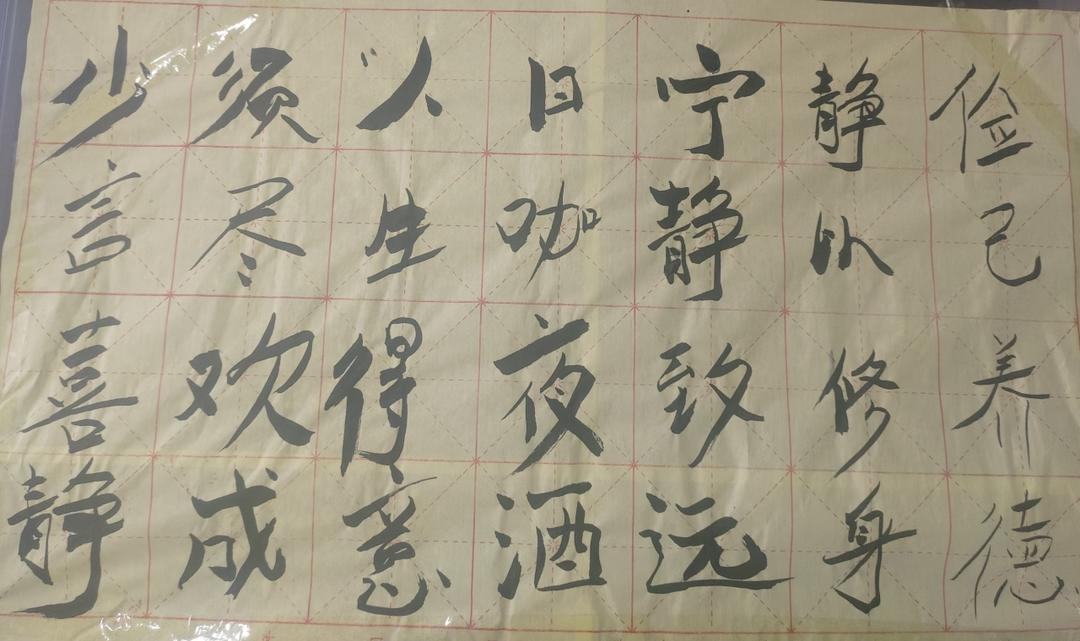 俭己养德
静以修身
宁静致远
日咖夜酒
人生得意
须尽欢成
少言喜静